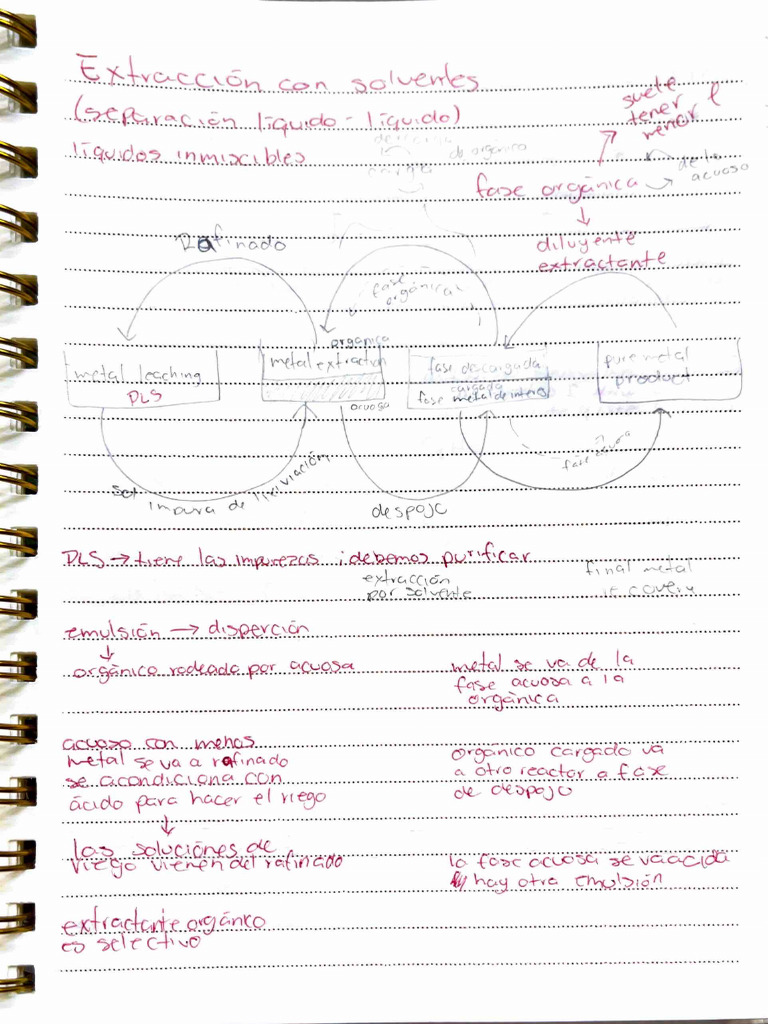 Extracción con solventes
(separación líquido - líquido)
líquidos inmiscibles
suele
tener
menor ρ
de la
acuosa
fase orgánica
diluyente
extractante
do orgánico
cargo
Rafinado
fase
orgánica
orgánica
metal leaching
PLS
metal extraction
acuosa
fase descargada
cargada
fase metal de interés
pure metal
product
Sol impura de lixiviación
despojo
fase acuosa
PLS → tiene las impurezas ¡debemos purificar
extracción
por solvente
final metal
emulsión → disperción
↓
orgánico rodeado por acuosa
metal se va de la
fase acuosa a la
orgánica
acuosa con menos
metal se va a rafinado
se acondiciona con
ácido para hacer el riego
↓
las soluciones de
riego vienen del rafinado
orgánico cargado va
a otro reactor a fase
de despojo
la fase acuosa se va acida
hay otra emulsión
extractante orgánico
es selectivo